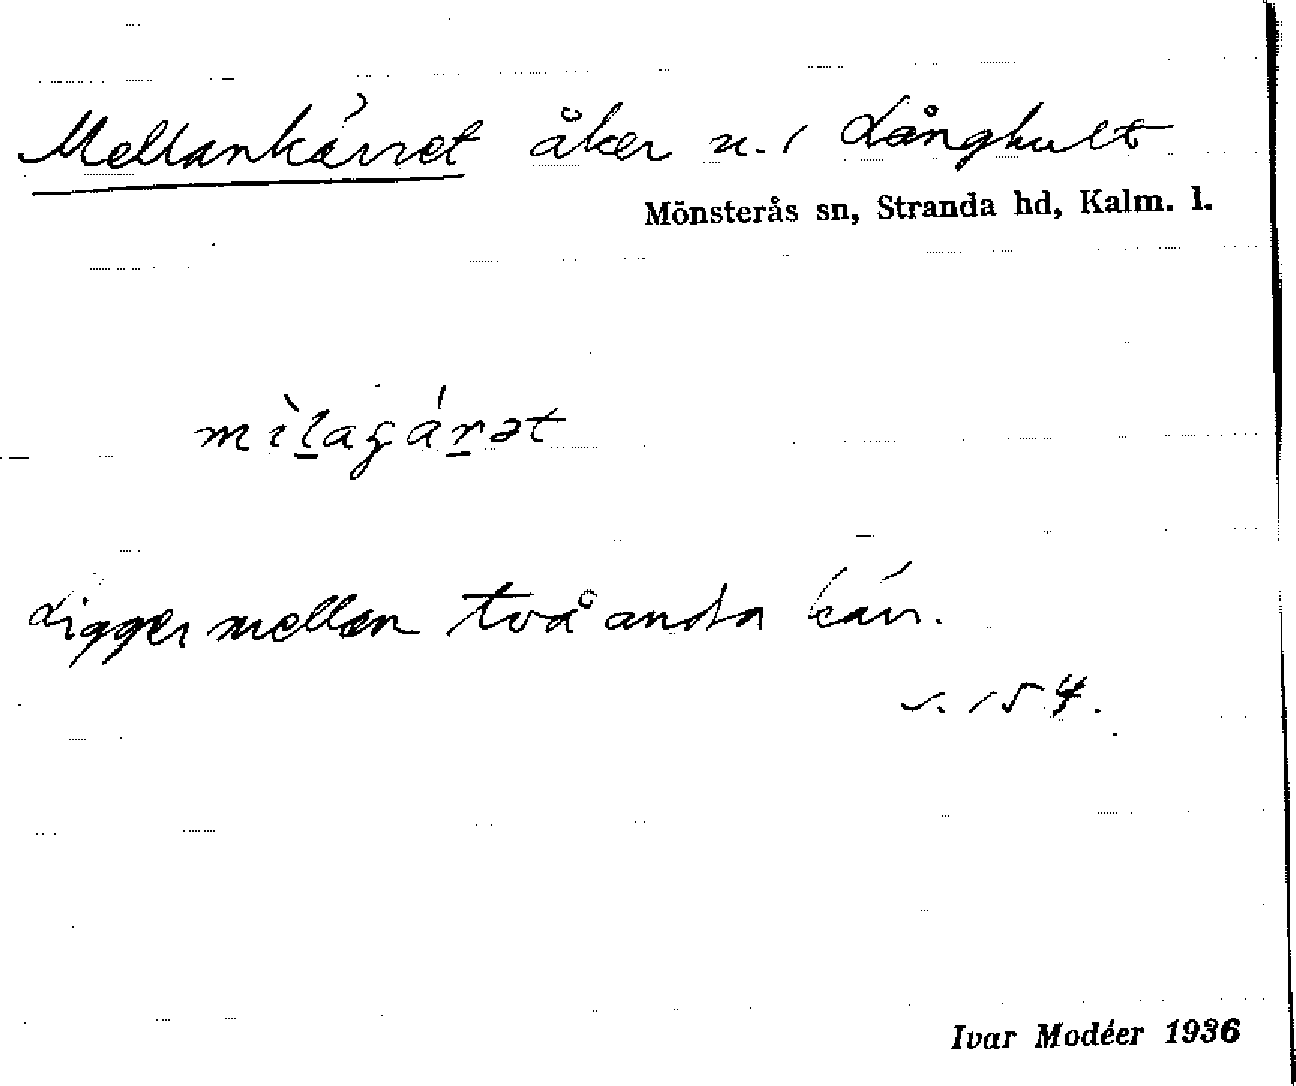 Mellankärret åker n. / Långhult
Mönsterås sn, Stranda hd, Kalm. l.
mìl̲agár̲ət
Ligger mellan två andra kärr.
s. 154.
Ivar Modéer 1936